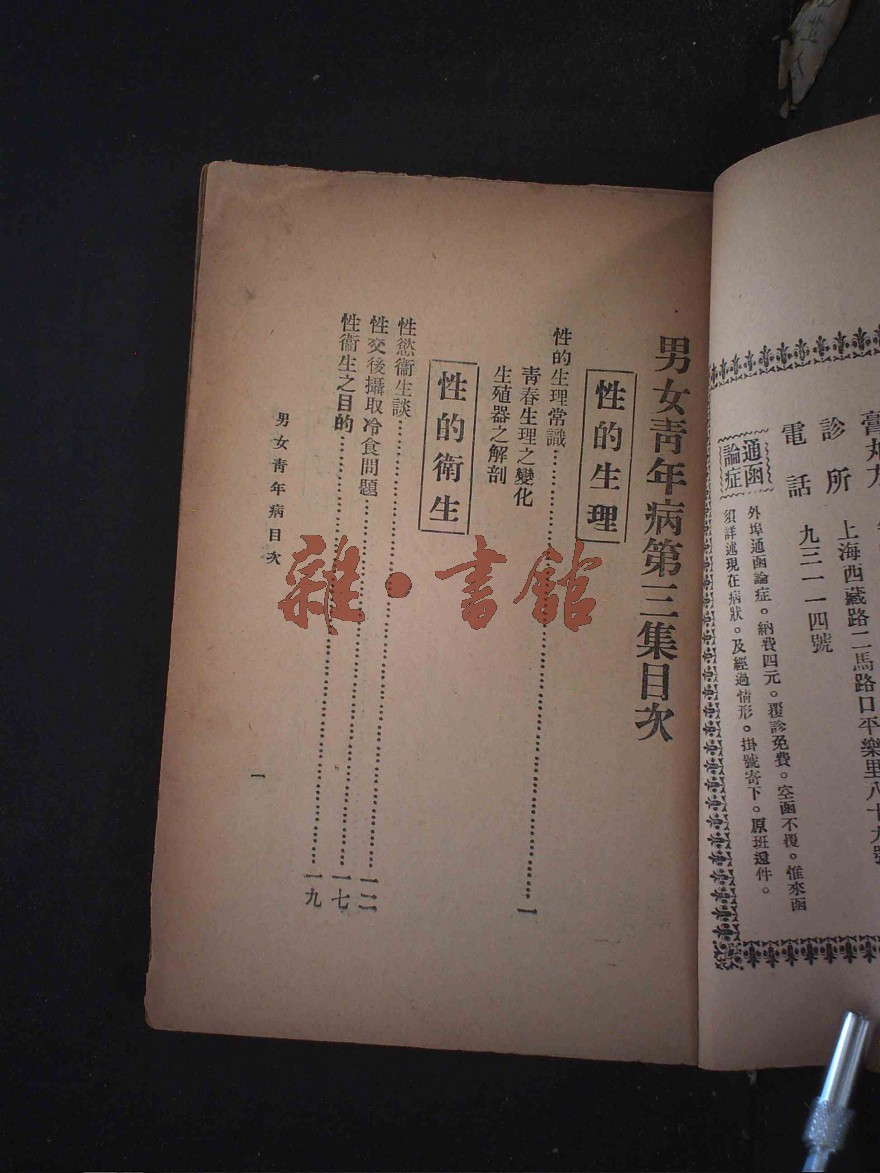 診所 上海西藏路二馬路口平樂里八十九號
電話 九三一一四號
通函論症
外埠通函論症。納費四元。覆診免費。空函不覆。惟來函
須詳述現在病狀。及經過情形。掛號寄下。原班還件。
男女靑年病第三集目次
性的生理
性的生理常識…一
靑春生理之變化
生殖器之解剖
性的衛生
性慾衞生談…一二
性交後攝取冷食問題…一七
性衞生之目的…一九
男女靑年病 目次
一
雜·書館